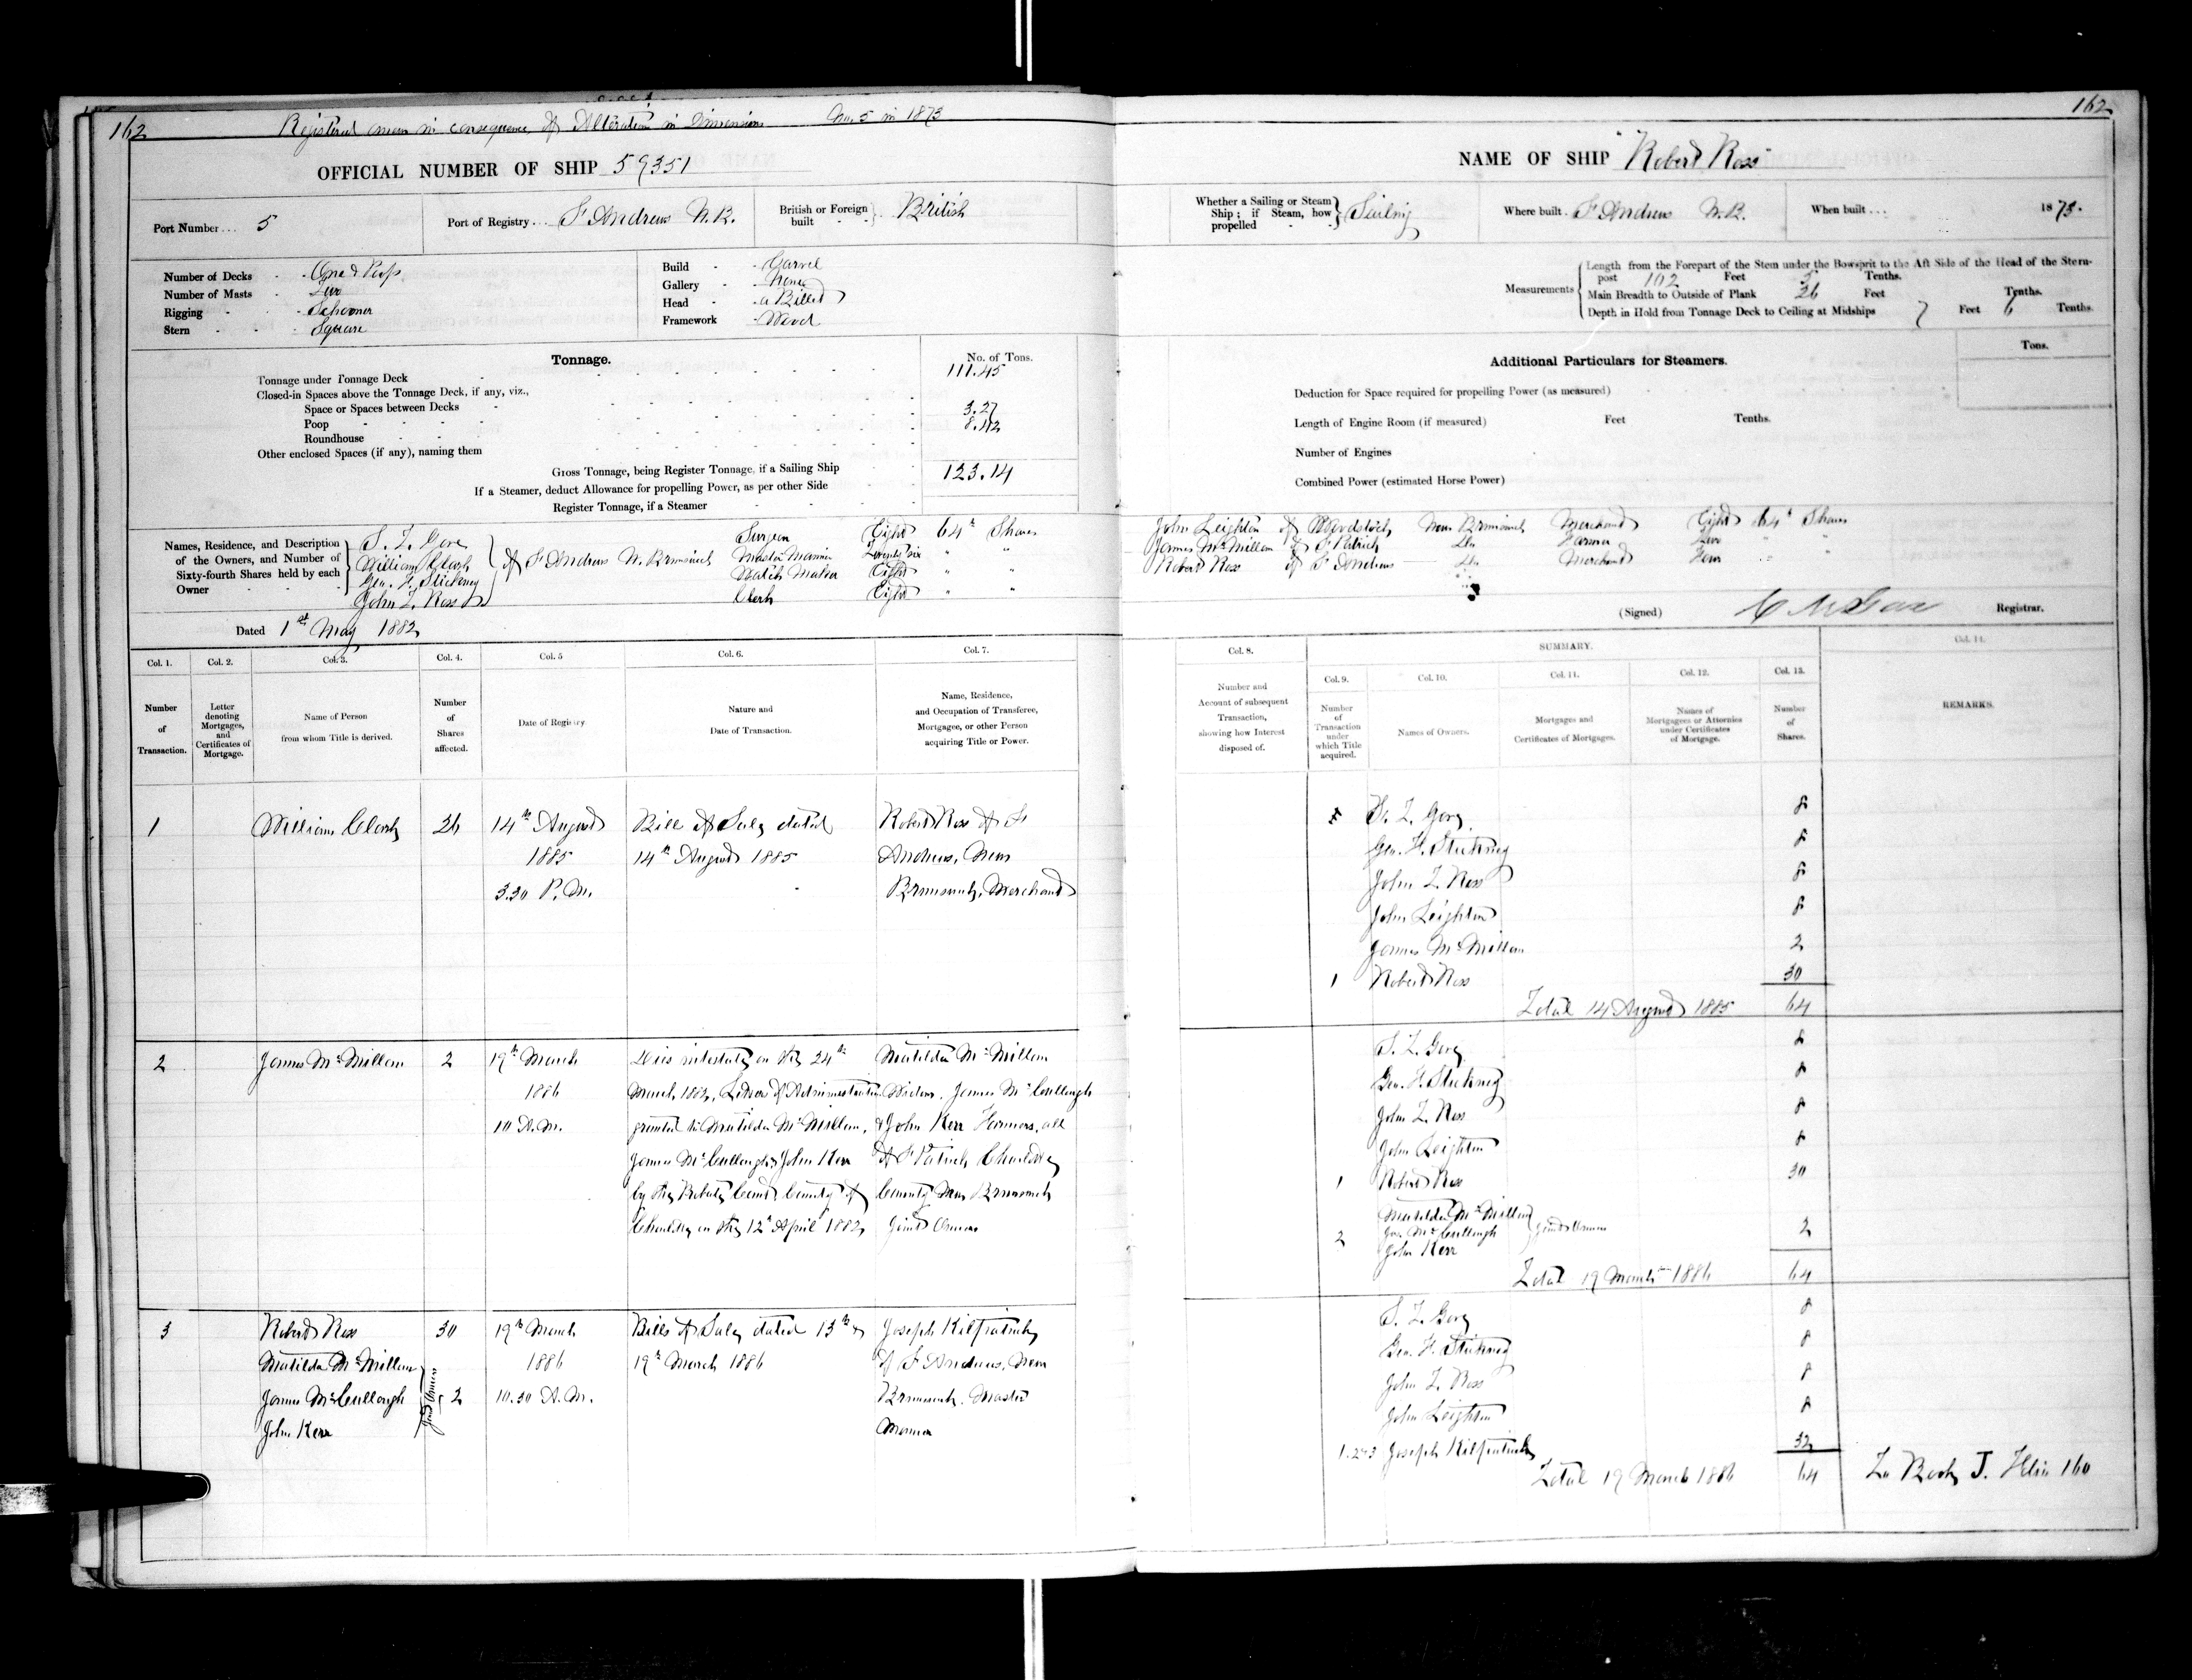 162
Registered anew in consequence of Alteration in Dimensions No. 5 in 1873
OFFICIAL NUMBER OF SHIP 59351
Port Number ... 5
Port of Registry ... St Andrews N.B.
British or Foreign built British
Number of Decks One & Poop
Number of Masts Two
Rigging Schooner
Stern Square
Build Carvel
Gallery None
Head a Billet
Framework Wood
Tonnage.
No. of Tons.
Tonnage under Tonnage Deck 111.45
Closed-in Spaces above the Tonnage Deck, if any, viz.,
Space or Spaces between Decks 3.27
Poop 8.42
Roundhouse
Other enclosed Spaces (if any), naming them
Gross Tonnage, being Register Tonnage, if a Sailing Ship 123.14
If a Steamer, deduct Allowance for propelling Power, as per other Side
Register Tonnage, if a Steamer
Names, Residence, and Description of the Owners, and Number of Sixty-fourth Shares held by each Owner
S. T. Gove Surgeon Eight 64th Shares
William Clark of St Andrews N. Brunswick Master Mariner Twenty six " "
Geo. F. Stickney Watch Maker Eight " "
John T. Ross Clerk Eight " "
Dated 1st May 1882
Col. 1. Number of Transaction.
Col. 2. Letter denoting Mortgages, and Certificates of Mortgage.
Col. 3. Name of Person from whom Title is derived.
Col. 4. Number of Shares affected.
Col. 5 Date of Registry.
Col. 6. Nature and Date of Transaction.
Col. 7. Name, Residence, and Occupation of Transferee, Mortgagee, or other Person acquiring Title or Power.
1 William Clark 26 14th August Bill of Sale dated Robert Ross of St
1885 14th August 1885 Andrews, New
3.30 P.M. Brunswick, Merchant
2 James McMillan 2 19th March Dies intestate on the 24th Matilda McMillan
1886 March 1882, Letters of Administration Widow, James McCullough
10 A.M. granted to Matilda McMillan, & John Kerr Farmers, all
James McCullough & John Kerr of St Patrick Charlotte
by the Probate Court County of County New Brunswick
Charlotte on the 12th April 1882 Joint Owners
3 Robert Ross 30 19th March Bills of Sale dated 13th & Joseph Kilpatrick
Matilda McMillan 1886 19th March 1886 of St Andrews, New
James McCullough Joint Owners 2 10.30 A.M. Brunswick, Master
John Kerr Mariner
162
NAME OF SHIP "Robert Ross"
Whether a Sailing or Steam Ship; if Steam, how propelled Sailing
Where built. St Andrews N.B.
When built ... 1873.
Measurements
Length from the Forepart of the Stem under the Bowsprit to the Aft Side of the Head of the Stern-
post 102 Feet 5 Tenths.
Main Breadth to Outside of Plank 26 Feet Tenths.
Depth in Hold from Tonnage Deck to Ceiling at Midships 7 Feet 6 Tenths.
Additional Particulars for Steamers.
Tons.
Deduction for Space required for propelling Power (as measured)
Length of Engine Room (if measured) Feet Tenths.
Number of Engines
Combined Power (estimated Horse Power)
John Leighton of Woodstock, New Brunswick Merchant Eight 64th Shares
James McMillan of St Patrick Do Farmer Two " "
Robert Ross of St Andrews Do Merchant Four " "
(Signed) Registrar.
Col. 8. Number and Account of subsequent Transaction, showing how Interest disposed of.
SUMMARY.
Col. 9. Number of Transaction under which Title acquired.
Col. 10. Names of Owners.
Col. 11. Mortgages and Certificates of Mortgages.
Col. 12. Names of Mortgagees or Attornies under Certificates of Mortgage.
Col. 13. Number of Shares.
Col. 14. REMARKS.
S. T. Gove 8
Geo. F. Stickney 8
John T. Ross 8
John Leighton 8
James McMillan 2
1 Robert Ross 30
Total 14 August 1885 64
S. T. Gove 8
Geo. F. Stickney 8
John T. Ross 8
John Leighton 8
1 Robert Ross 30
Matilda McMillan
2 Jas. McCullough Joint Owners 2
John Kerr
Total 19 March 1886 64
S. T. Gove 8
Geo. F. Stickney 8
John T. Ross 8
John Leighton 8
1.2&3 Joseph Kilpatrick 32
Total 19 March 1886 64 To Book J. Folio 160